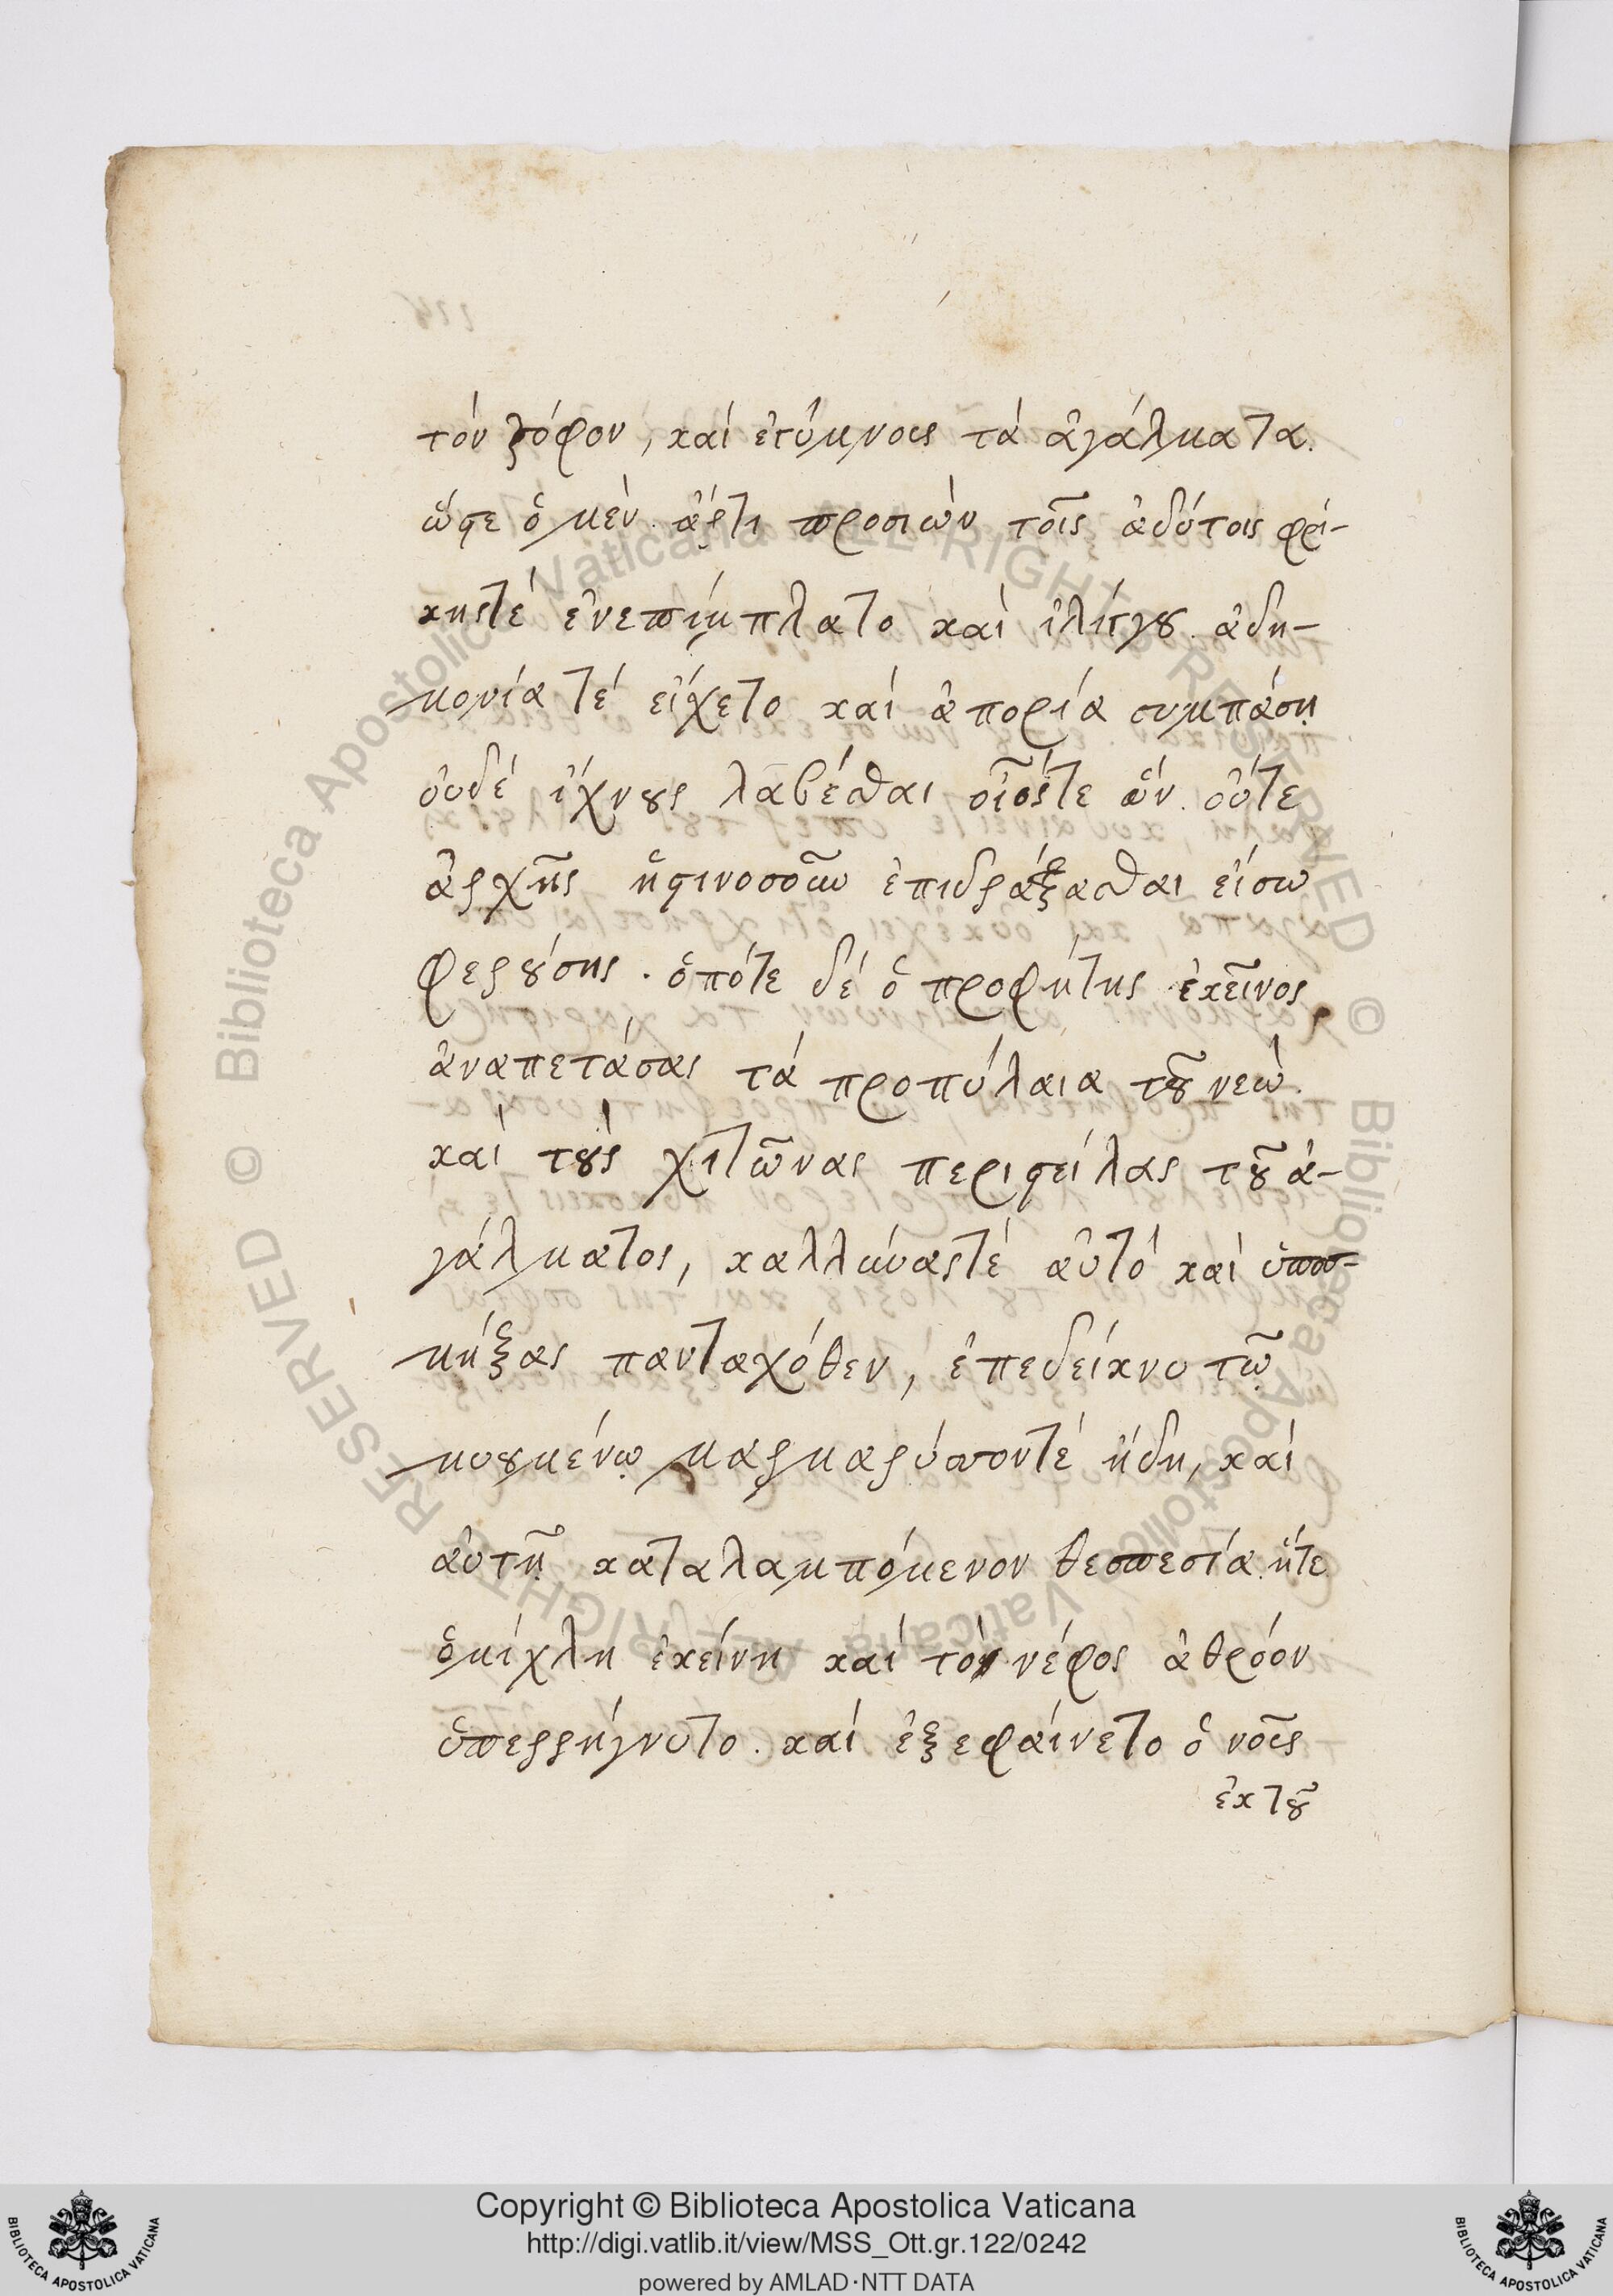 τὸν ζόφον, καὶ ἐγύμνους τὰ ἀγάλματα.
ὥστε ὁ μὲν ἄρτι προσιὼν τοῖς ἀδύτοις φρί-
κηστέ ἐνεπίμπλατο καὶ ἰλίγγου. ἀδη-
μονία τέ εἴχετο καὶ ἀπορία συμπάσῃ
οὐδέ ἴχνους λαβέσθαι οἷόστε ὤν. οὔτε
ἀρχῆς ἡστινοσοῦν ἐπιδράξασθαι εἴσω
φερούσης. ὁπότε δέ ὁ προφήτης ἐκεῖνος
ἀναπετάσας τὰ προπύλαια τοῦ νεὼ.
καὶ τοὺς χιτῶνας περιστείλας τοῦ ἀ-
γάλματος, καλλύναςτέ αὐτό καὶ ὑποσ-
μήξας πανταχόθεν, ἐπεδείκνυ τῷ
μυουμένῳ μαρμαρύσσοντέ ἤδη, καὶ
αὐτῇ καταλαμπόμενον θεσπεσία. ἥτε
ὁμίχλη ἐκείνη καὶ τὸ νέφος ἀθρόον
ὑπερρήγνυτο. καὶ ἐξεφαίνετο ὁ νοῦς
ἐκ τοῦ
Copyright © Biblioteca Apostolica Vaticana
http://digi.vatlib.it/view/MSS_Ott.gr.122/0242
powered by AMLAD·NTT DATA
BIBLIOTECA APOSTOLICA VATICANA
BIBLIOTECA APOSTOLICA VATICANA
© Biblioteca Apostolica Vaticana ALL RIGHTS RESERVED © Biblioteca Apostolica Vaticana ALL RIGHTS RESERVED